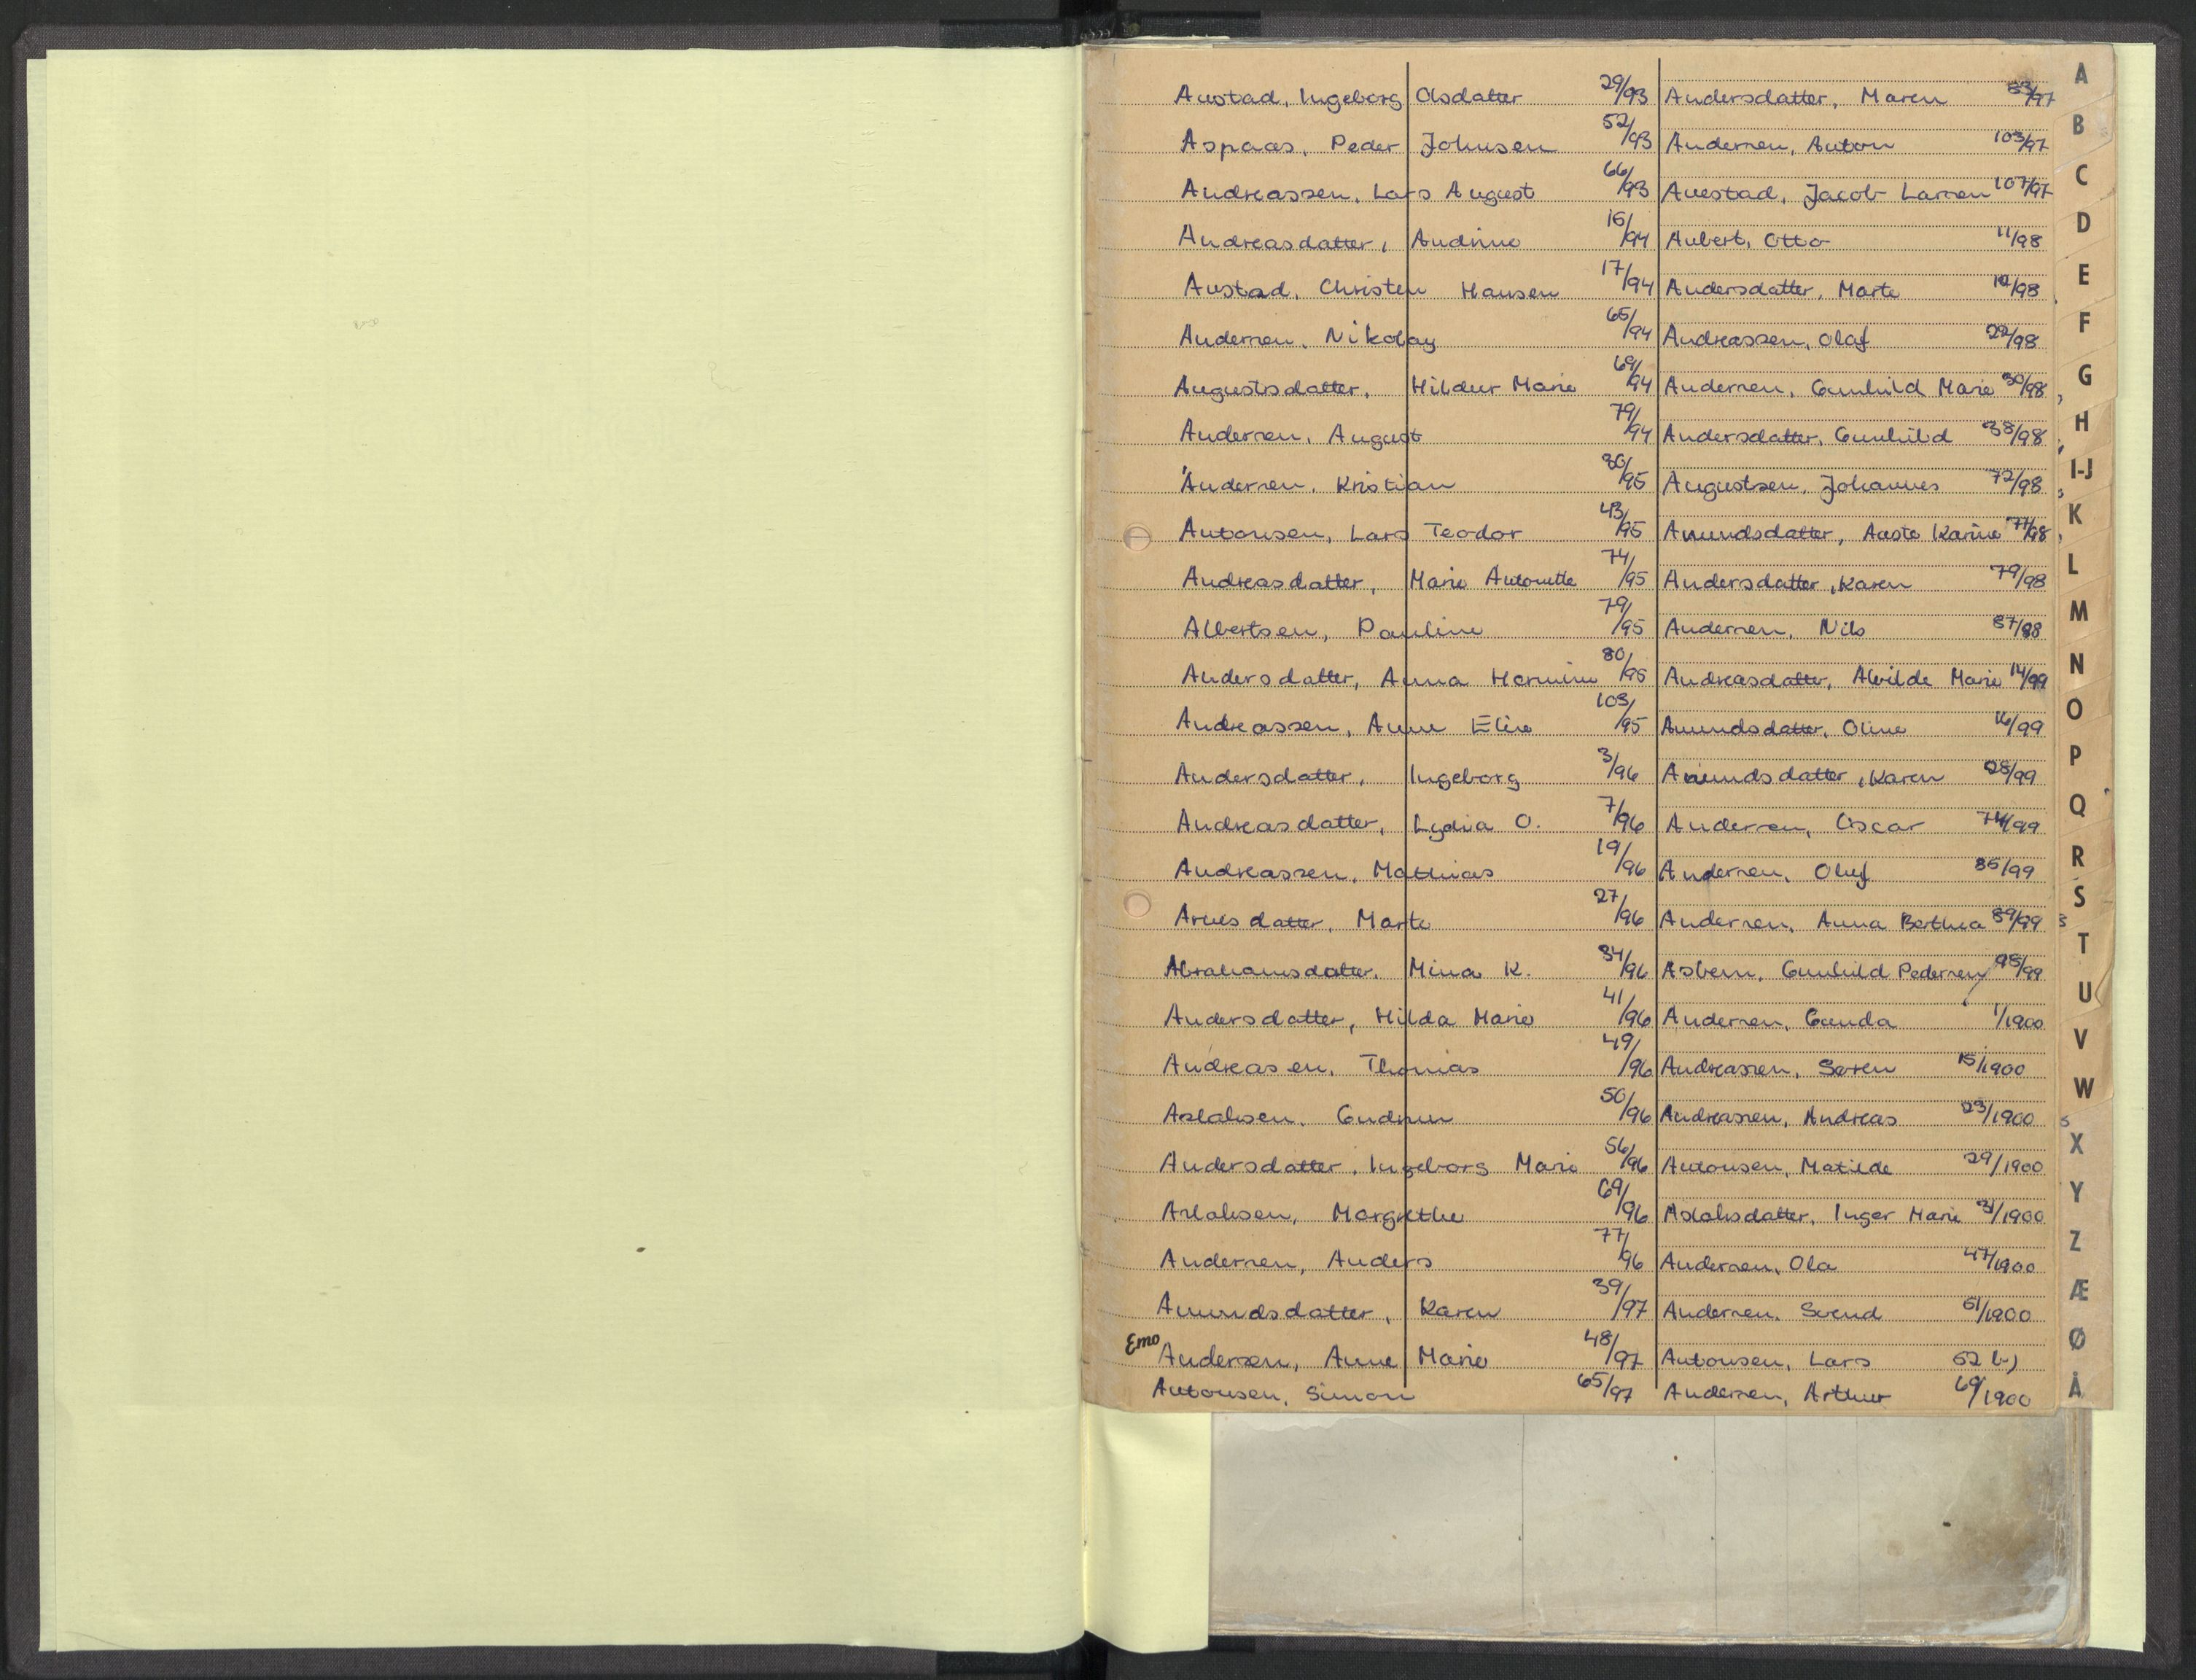 Austad, Ingeborg Olsdatter 29/93
Aspaas, Peder Johnsen 52/93
Andreassen, Lars August 66/93
Andreasdatter, Andrine 16/94
Austad, Christen Hansen 17/94
Andersen, Nikolay 65/94
Augustsdatter, Hildur Marie 69/94
Andersen, August 79/94
Andersen, Kristian 30/95
Antonsen, Lars Teodor 43/95
Andreasdatter, Marie Antonette 74/95
Albertsen, Pauline 79/95
Andersdatter, Anna Hermine 80/95
Andreassen, Anne Elise 103/95
Andersdatter, Ingeborg 3/96
Andreasdatter, Lydia O. 7/96
Andreassen, Mathias 19/96
Arnesdatter, Marte 27/96
Abrahamsdatter, Mina K. 34/96
Andersdatter, Hilda Marie 41/96
Andreasen, Thomas 49/96
Aslaksen, Gudrun 50/96
Andersdatter, Ingeborg Marie 56/96
Aslaksen, Margrethe 69/96
Andersen, Anders 77/96
Amundsdatter, Karen 39/97
Emo
Andersen, Anne Marie 48/97
Antonsen, Simon 65/97
Andersdatter, Maren 83/97
Andersen, Anton 103/97
Auestad, Jacob Larsen 107/97
Aubert, Otto 11/98
Andersdatter, Marte 12/98
Andreassen, Olaf 22/98
Andersen, Gunhild Marie 30/98
Andersdatter, Gunhild 38/98
Augustsen, Johannes 72/98
Amundsdatter, Aaste Karine 77/98
Andersdatter, Karen 79/98
Andersen, Nils 87/98
Andreasdatter, Alvilde Marie 14/99
Amundsdatter, Oline 16/99
Amundsdatter, Karen 28/99
Andersen, Oscar 74/99
Andersen, Oluf 85/99
Andersen, Anna Berthea 89/99
Asbern, Gunhild Pedersen 98/99
Andersen, Ganda 1/1900
Andreassen, Søren 15/1900
Andreassen, Andreas 23/1900
Antonsen, Matilde 29/1900
Aslaksdatter, Inger Marie 31/1900
Andersen, Ola 47/1900
Andersen, Svend 51/1900
Antonsen, Lars 52 b)
Andersen, Arthur 69/1900
A
B
C
D
E
F
G
H
I-J
K
L
M
N
O
P
Q
R
S
T
U
V
W
X
Y
Z
Æ
Ø
Å